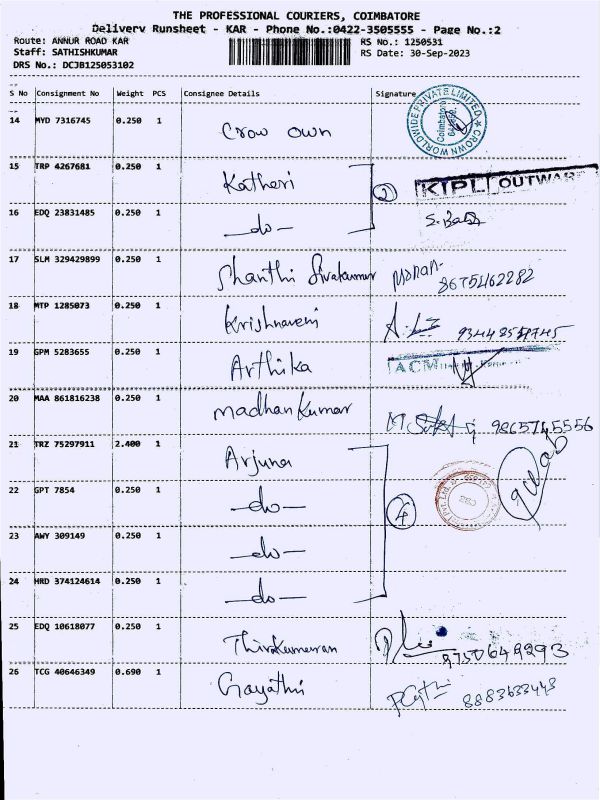 THE PROFESSIONAL COURIERS, COIMBATORE
Delivery Runsheet - KAR - Phone No.:0422-3505555 - Page No.:2
Route: ANNUR ROAD KAR RS No.: 1250531
Staff: SATHISHKUMAR RS Date: 30-Sep-2023
DRS No.: DCJB125053102
S No Consignment No Weight PCS Consignee Details Signature
14 MYD 7316745 0.250 1 Crow own CROWN WORLDWIDE PRIVATE LIMITED Coimbatore
15 TRP 4267681 0.250 1 Katheri 2 KIPL OUTWAR
16 EDQ 23831485 0.250 1 -do- S. Babu
17 SLM 329429899 0.250 1 Shanthi Sivakumar Mohan 8675462282
18 MTP 1285073 0.250 1 Krishnaveni
19 GPM 5283655 0.250 1 Arthika ACM
20 MAA 861816238 0.250 1 Madhankumar 9865745556
21 TRZ 75297911 2.400 1 Arjuna
22 GPT 7854 0.250 1 -do- 4
23 AWY 309149 0.250 1 -do-
24 HRD 374124614 0.250 1 -do-
25 EDQ 10618077 0.250 1 Thirukumaran 9750649293
26 TCG 40646349 0.690 1 Gayathri 8883633443